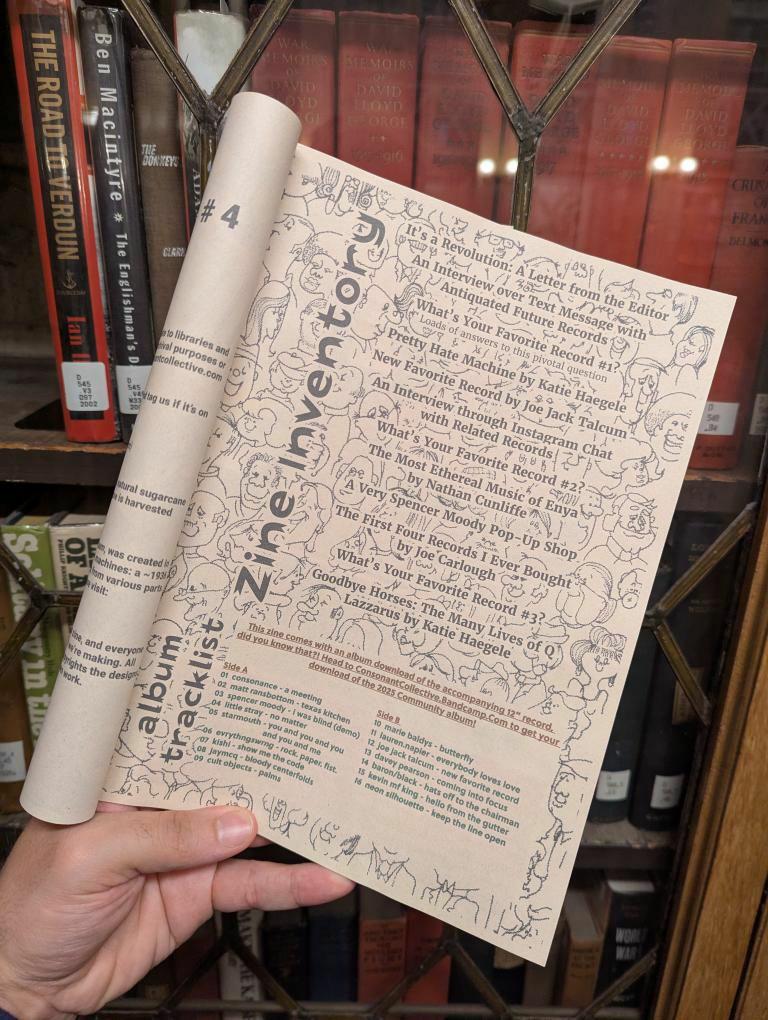 THE ROAD TO VERDUN
Ian
D
545
V3
D97
2002
Ben Macintyre * The Englishman's
D
545
THE
DONKEYS
CLARK
WAR
MEMOIRS
OF
DAVID
LLOYD
GEORGE
WAR
MEMOIRS
OF
DAVID
LLOYD
GEORGE
1915-1916
MEMOIRS
DAVID
LLOYD
GEORGE
# 4
to libraries and
purposes or
ntcollective.com
tag us if it's on
natural sugarcane
is harvested
was created in
machines: a ~193
from various part
visit:
ine, and everyone
we're making. All
the design
work.
Zine Inventory
It's a Revolution: A Letter from the Editor
An Interview over Text Message with
Antiquated Future Records
What's Your Favorite Record #1?
Loads of answers to this pivotal question
Pretty Hate Machine by Katie Haegele
New Favorite Record by Joe Jack Talcum
An Interview through Instagram Chat
with Related Records
What's Your Favorite Record #2?
The Most Ethereal Music of Enya
by Nathan Cunliffe
A Very Spencer Moody Pop-Up Shop
The First Four Records I Ever Bought
by Joe Carlough
What's Your Favorite Record #3?
Goodbye Horses: The Many Lives of Q
Lazzarus by Katie Haegele
This zine comes with an album download of the accompanying 12" record,
did you know that?! Head to ConsonantCollective.Bandcamp.Com to get your
download of the 2025 Community album!
album
tracklist
Side A
01 consonance - a meeting
02 matt ransbottom - texas kitchen
03 spencer moody - i was blind (demo)
04 little strap - no matter
05 starmouth - you and you and you
and you and me
06 evrythngswrng - rock. paper. fist.
07 kishi - show me the code
08 jaymcq - bloody centerfolds
09 cult objects - palms
Side B
10 marie baldys - butterfly
11 lauren.napier - everybody loves love
12 joe jack talcum - new favorite record
13 davey pearson - coming into focus
14 baron/black - hats off to the chairman
15 kevin mf king - hello from the gutter
16 neon silhouette - keep the line open